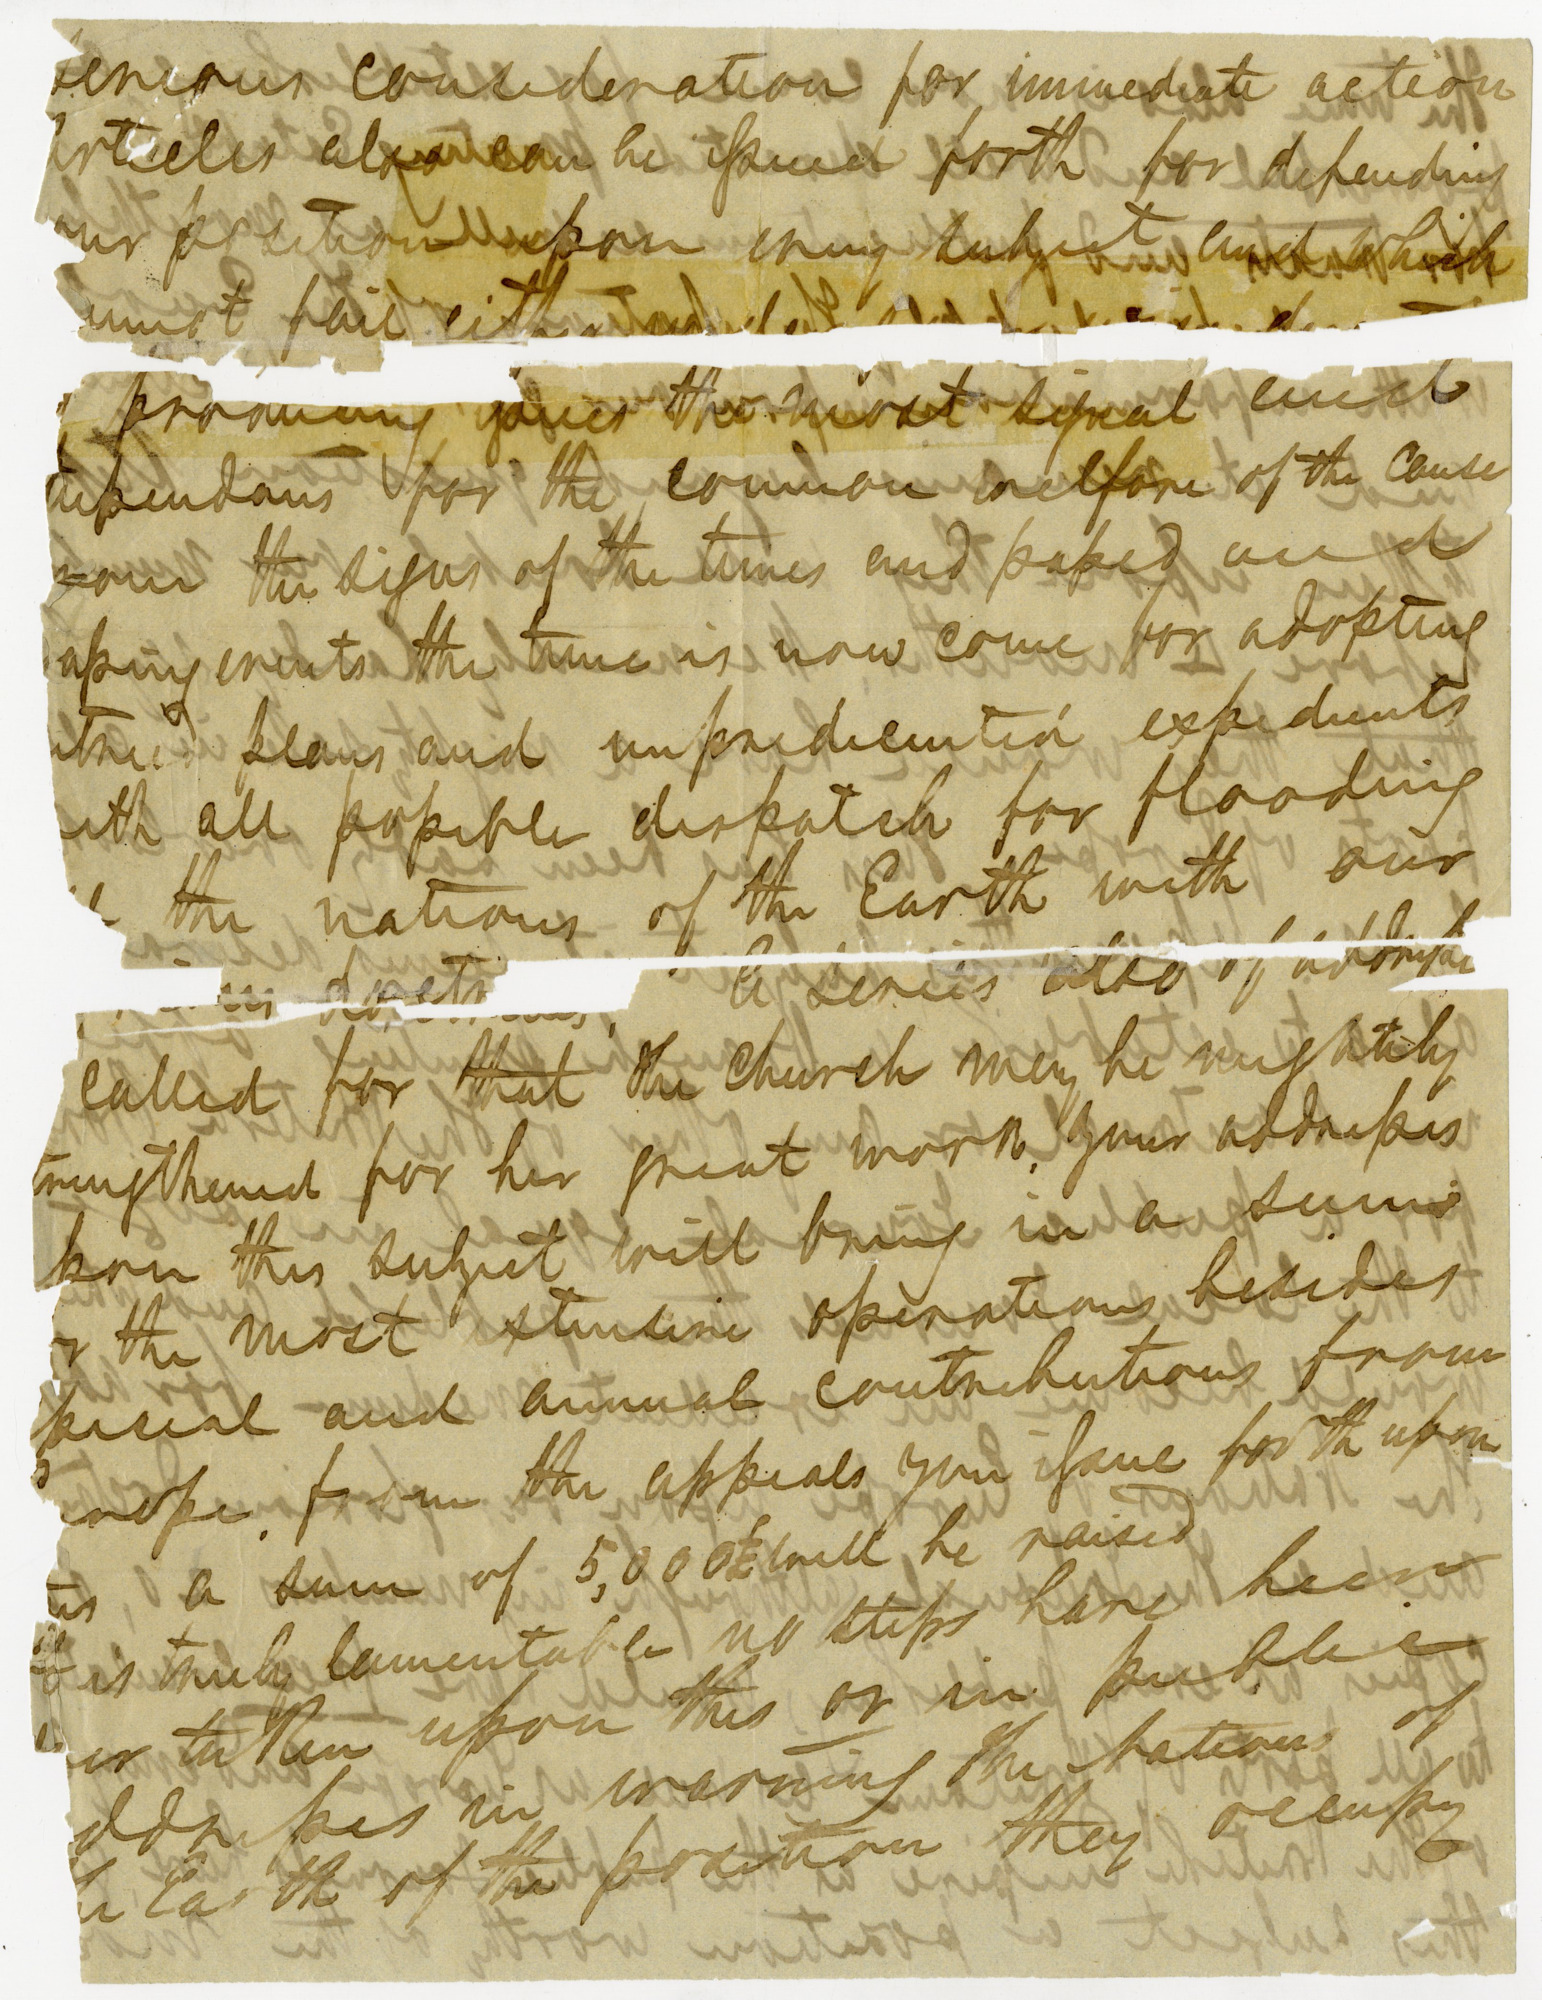 serious consideration for immediate action
articles also can be issued forth for defending
our position upon every subject and which
annot fail either
producing gives the most signal and
tupendous for the common welfare of the cause
rom the signs of the times and passed and
assing events the time is now come for adopting
ntried plans and unpredicented expedients
ith all possible dispatch for flooding
the nations of the Earth with our
A series also of addresse
called for that the Church may be mightily
trengthened for her great work, your addresses
pon this subject will bring in a sum
or the most extensive operations besides
pecial and annual contributions from
urope. from the appeals you issue forth upon
is a sum of 5,000£ will be raised
it is truly lamentable no steps have been
er taken upon this or in public
ddresses in warning the nations of
he Earth of the position they occupy